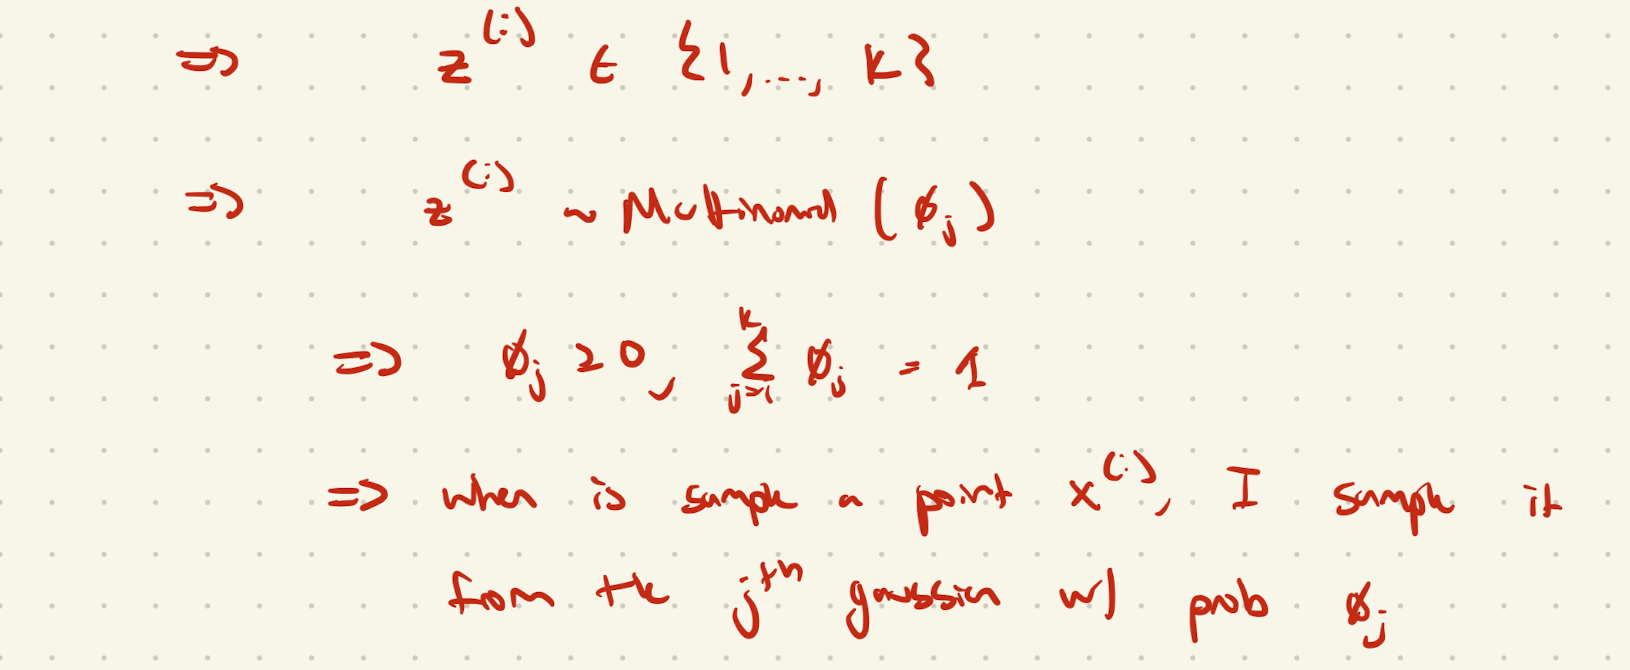 ⇒ z^(i) ∈ {1,..., k}
⇒ z^(i) ~ Multinomial (ϕ_j)
⇒ ϕ_j ≥ 0, Σ_{j=1}^{k} ϕ_j = 1
⇒ when is sample a point x^(i), I sample it
from the j^th gaussian w/ prob ϕ_j